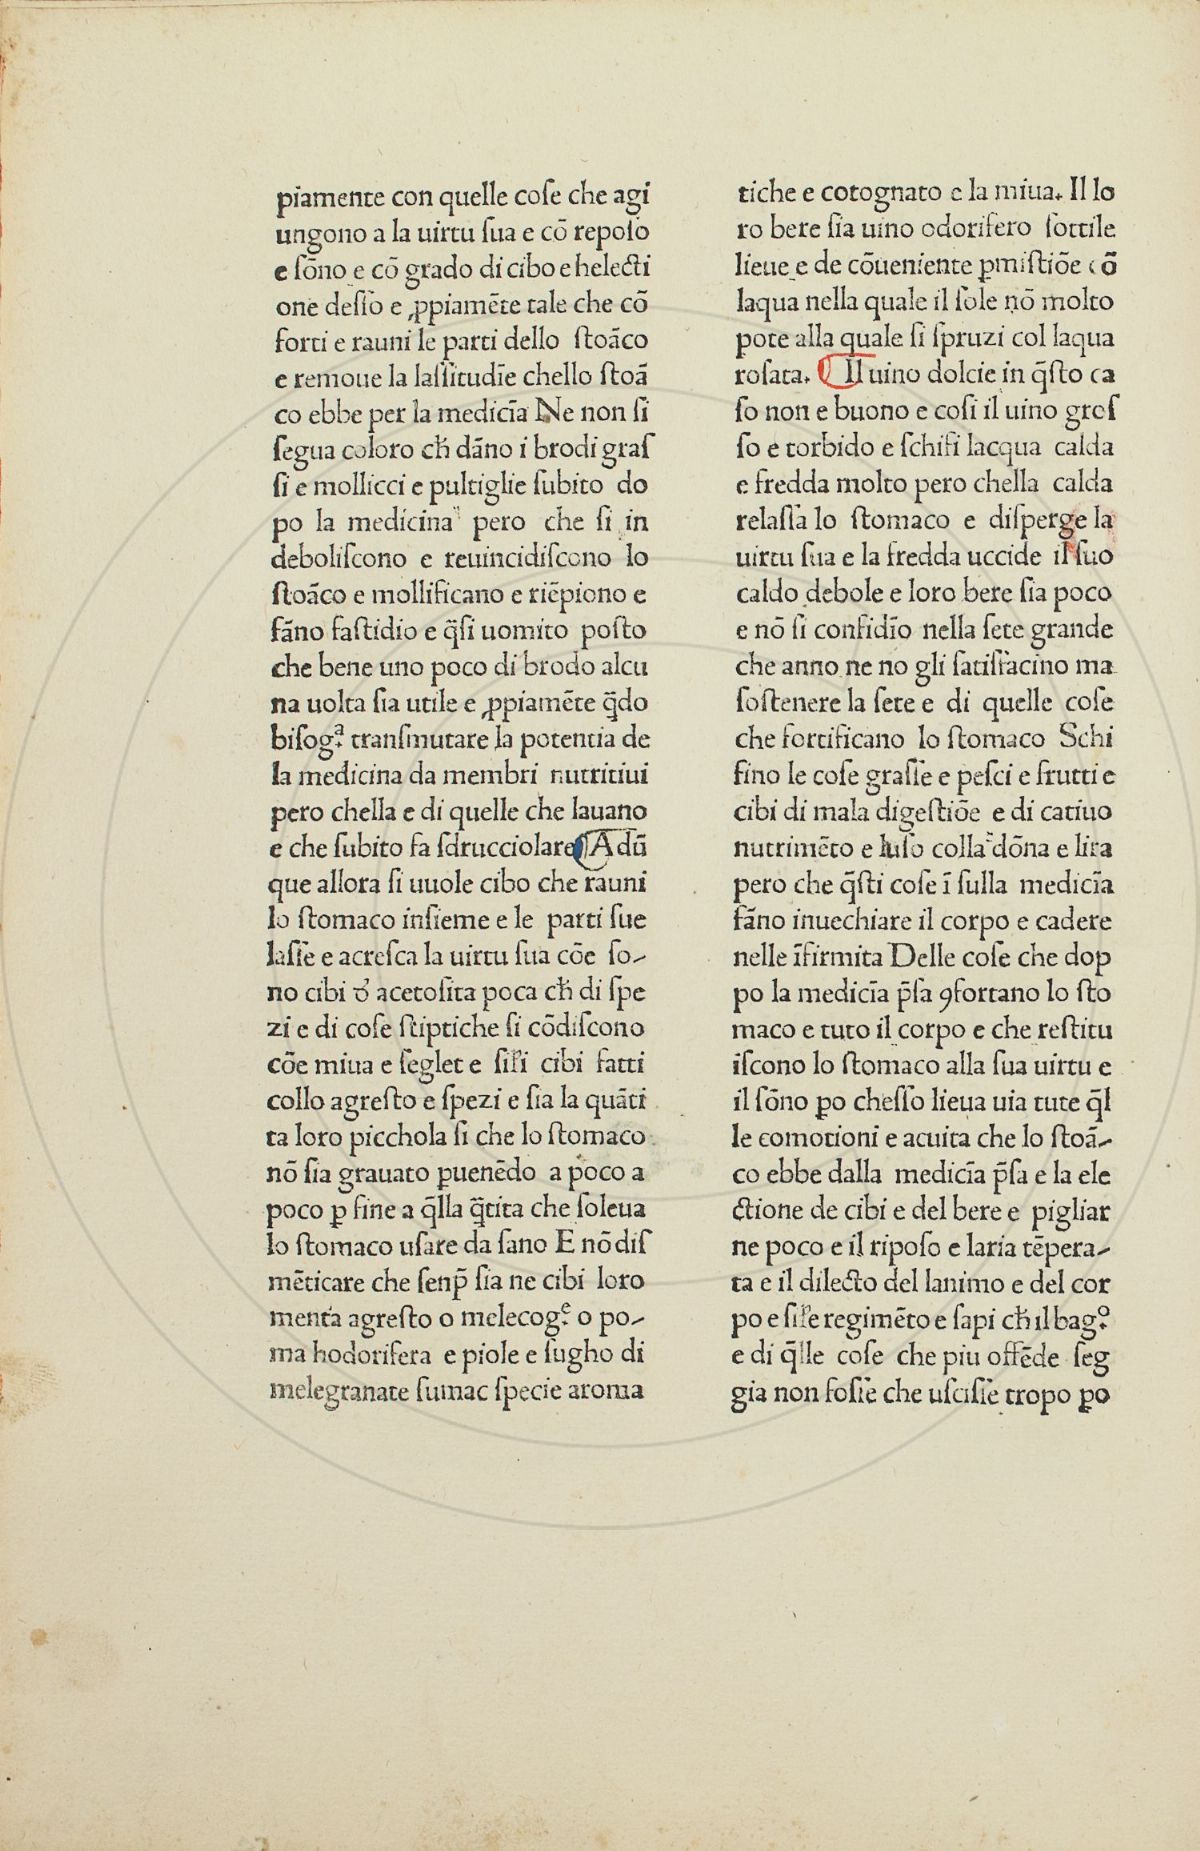 piamente con quelle coſe che agi
ungono a la uirtu ſua e cō repoſo
e ſōno e cō grado di cibo e helecti
one deſſo e ꝓpiamēte tale che cō
forti e rauni le parti dello ſtoāco
e remoue la laſſitudīe chello ſtoā
co ebbe per la medicīa Ne non ſi
ſegua coloro cħ dāno i brodi graſ
ſi e mollicci e pultiglie ſubito do
po la medicina pero che ſi in
deboliſcono e reuincidiſcono lo
ſtoāco e mollificano e riēpiono e
fāno faſtidio e q̄ſi uomito poſto
che bene uno poco di brodo alcu
na uolta ſia utile e ꝓpiamēte q̄do
biſog.ª tranſmutare la potentia de
la medicina da membri nutritiui
pero chella e di quelle che lauano
e che ſubito fa ſdrucciolare ¶ Adū
que allora ſi uuole cibo che rauni
lo ſtomaco inſieme e le parti ſue
laſſe e acreſca la uirtu ſua cōe ſo-
no cibi d̄ acetoſita poca cħ di ſpe
zi e di coſe ſtiptiche ſi cōdiſcono
cōe miua e ſeglet e ſiłi cibi fatti
collo agreſto e ſpezi e ſia la quāti
ta loro picchola ſi che lo ſtomaco
nō ſia grauato ꝑuenēdo a poco a
poco ꝑ fine a q̄lla q̄tita che ſoleua
lo ſtomaco uſare da ſano E nō diſ
mēticare che ſenp̄ ſia ne cibi loro
menta agreſto o melecog.ᵉ o po-
ma hodorifera e piole e ſugho di
melegranate ſumac ſpecie aroma
tiche e cotognato e la miua. Il lo
ro bere ſia uino odorifero ſottile
lieue e de cōueniente ꝑmiſtiōe cō
laqua nella quale il ſole nō molto
pote alla quale ſi ſpruzi col laqua
roſata. ¶ Il uino dolcie in q̄ſto ca
ſo non e buono e coſi il uino groſ
ſo e torbido e ſchifi lacqua calda
e fredda molto pero chella calda
relaſſa lo ſtomaco e diſperge la
uirtu ſua e la fredda uccide il ſuo
caldo debole e loro bere ſia poco
e nō ſi confidīo nella ſete grande
che anno ne no gli ſatiſfacino ma
ſoſtenere la ſete e di quelle coſe
che fortificano lo ſtomaco Schi
fino le coſe graſſe e peſci e frutti e
cibi di mala digeſtiōe e di catiuo
nutrimēto e luſo colla dōna e lira
pero che q̄ſti coſe ī ſulla medicīa
fāno inuechiare il corpo e cadere
nelle īfirmita Delle coſe che dop
po la medicīa p̄ſa ꝯfortano lo ſto
maco e tuto il corpo e che reſtitu
iſcono lo ſtomaco alla ſua uirtu e
il ſōno ꝑo cheſſo lieua uia tute q̄l
le comotioni e acuita che lo ſtoā-
co ebbe dalla medicīa p̄ſa e la ele
ctione de cibi e del bere e pigliar
ne poco e il ripoſo e laria tēpera-
ta e il dilecto del lanimo e del cor
po e ſiłe regimēto e ſapi cħ il bag.º
e di q̄lle coſe che piu offēde ſeg
gia non foſſe che uſciſſe tropo ꝑo